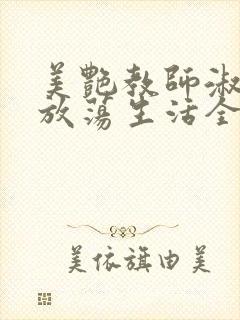 美艷教師淑
放蕩生活全
美依旗由美